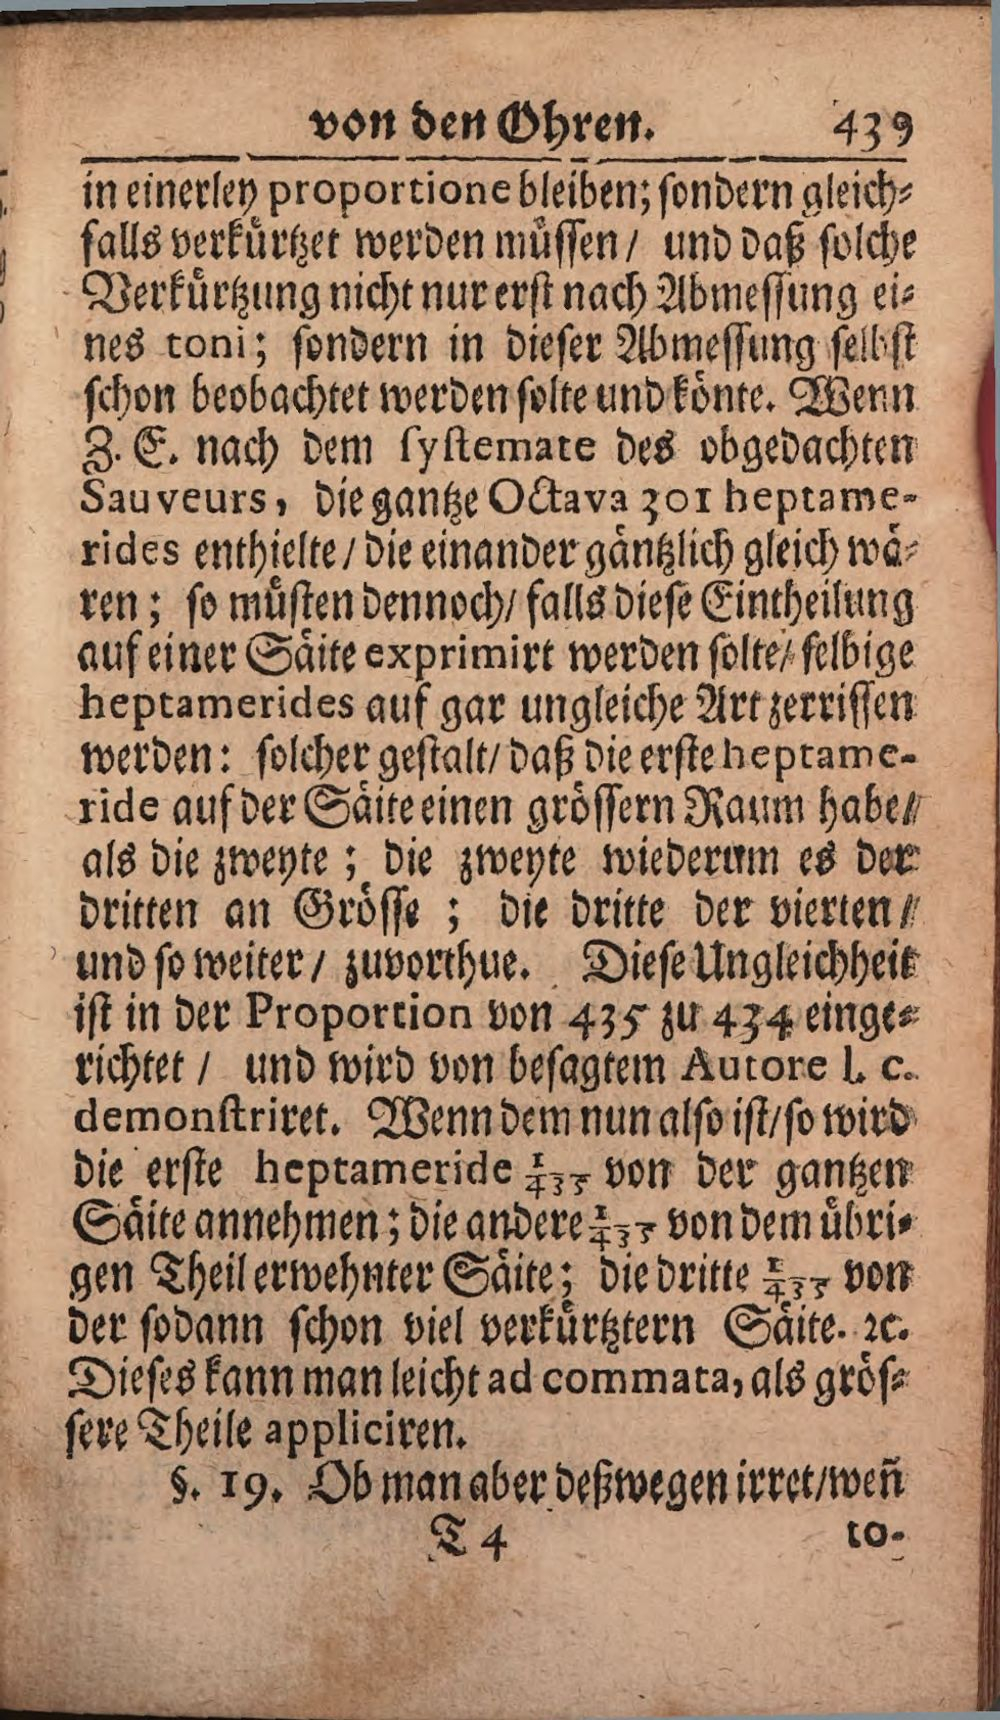 von den Ohren. 439
in einerley proportione bleiben; sondern gleich⸗
falls verkürtzet werden müssen / und daß solche
Verkürtzung nicht nur erst nach Abmessung ei⸗
nes toni; sondern in dieser Abmessung selbst
schon beobachtet werden solte und könte. Wenn
Z. E. nach dem systemate des obgedachten
Sauveurs, die gantze Octava 301 heptame-
rides enthielte / die einander gäntzlich gleich wä⸗
ren; so müsten dennoch / falls diese Eintheilung
auf einer Säite exprimirt werden solte / selbige
heptamerides auf gar ungleiche Art zerrissen
werden: solcher gestalt / daß die erste heptame-
ride auf der Säite einen grössern Raum habe /
als die zweyte; die zweyte wiederum es der
dritten an Grösse; die dritte der vierten /
und so weiter / zuvorthue. Diese Ungleichheit
ist in der Proportion von 435 zu 434 einge⸗
richtet / und wird von besagtem Autore l. c.
demonstriret. Wenn dem nun also ist / so wird
die erste heptameride 1/435 von der gantzen
Säite annehmen; die andere 1/435 von dem übri⸗
gen Theil erwehnter Säite; die dritte 1/435 von
der sodann schon viel verkürtztern Säite. ꝛc.
Dieses kann man leicht ad commata, als grös⸗
sere Theile appliciren.
§. 19. Ob man aber deßwegen irret / weñ
T 4 to-